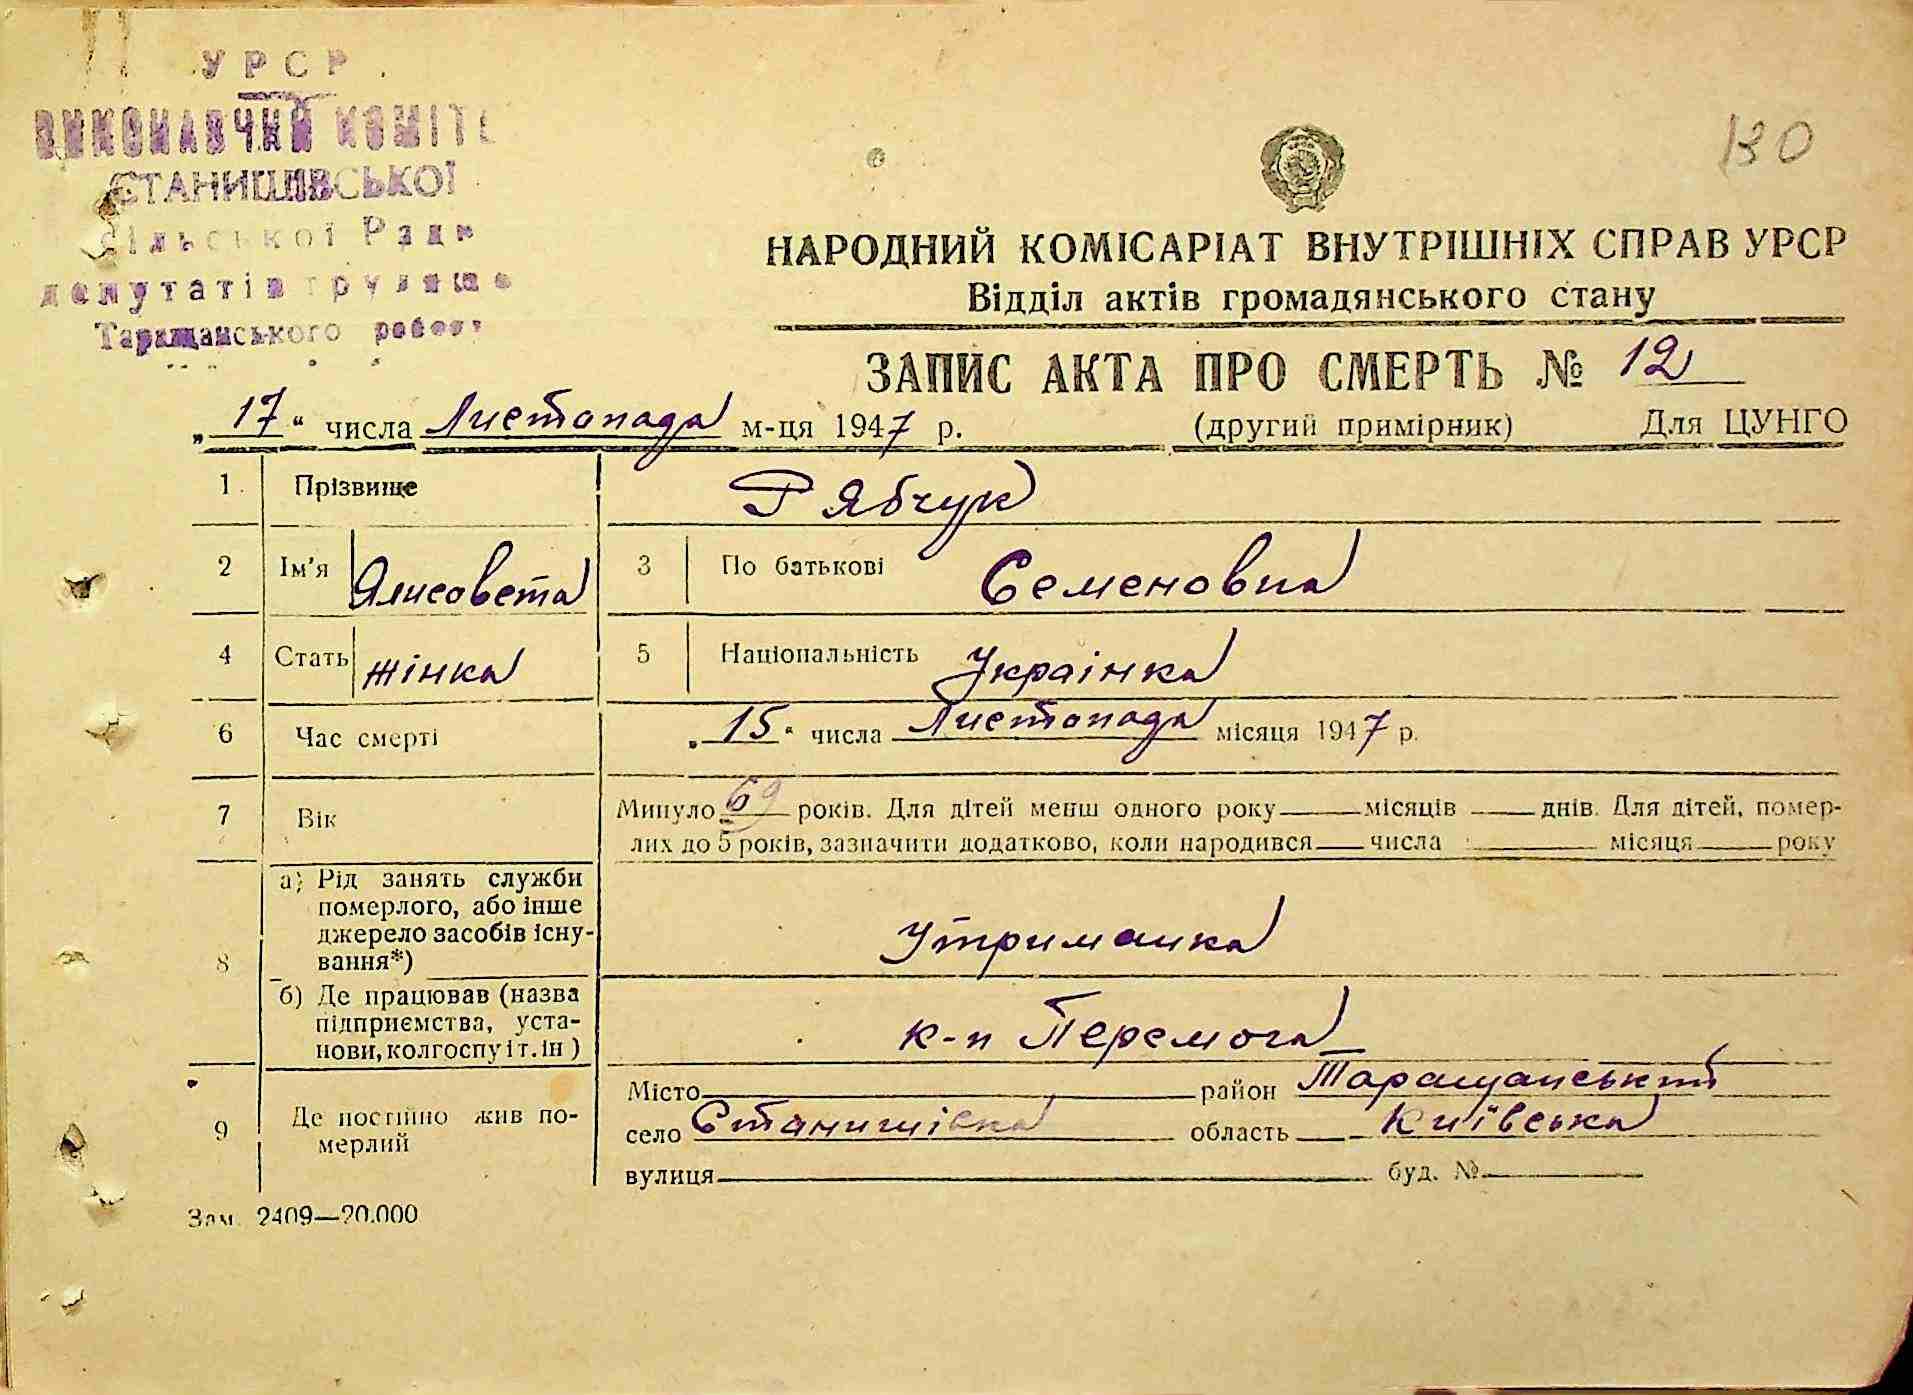 УРСР
ВИКОНАВЧИЙ КОМІТЕ
СТАНИШІВСЬКОЇ
Сільської Ради
депутатів трудящих
Таращанського району
130
НАРОДНИЙ КОМІСАРІАТ ВНУТРІШНІХ СПРАВ УРСР
Відділ актів громадянського стану
ЗАПИС АКТА ПРО СМЕРТЬ № 12
„17“ числа Листопада м-ця 1947 р. (другий примірник) Для ЦУНГО
1 Прізвище Рябчук
2 Ім'я Ялисовета 3 По батькові Семеновна
4 Стать жінка 5 Національність Українка
6 Час смерті „15“ числа Листопада місяця 1947 р.
7 Вік Минуло 69 років. Для дітей менш одного року місяців днів. Для дітей, помер-
лих до 5 років, зазначити додатково, коли народився числа місяця року
8 а) Рід занять служби
померлого, або інше
джерело засобів існу-
вання*) Утриманка
б) Де працював (назва
підприємства, уста-
нови, колгоспу і т. ін.) к-п Перемога
9 Де постійно жив по-
мерлий
Місто район Таращанський
село Станишівка область Київська
вулиця буд. №
Зам. 2409—20.000